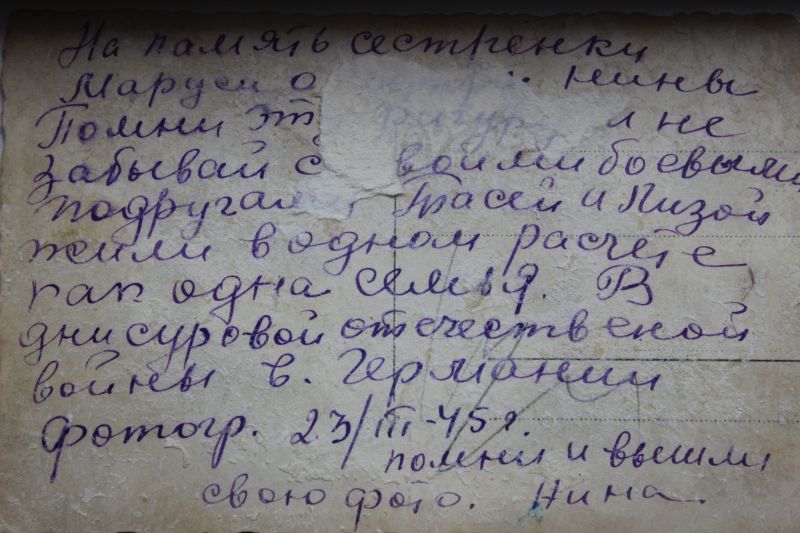 На память сестрёнки
Маруси о Нины
Помни эту фигуру и не
забывай с двоими боевыми
подругами Тасей и Лизой
жили в одном расчёте
как одна семья. В
дни суровой отечественой
войны в. Германии
фотогр. 23/III-45г.
помни и вышли
свою фото. Нина.